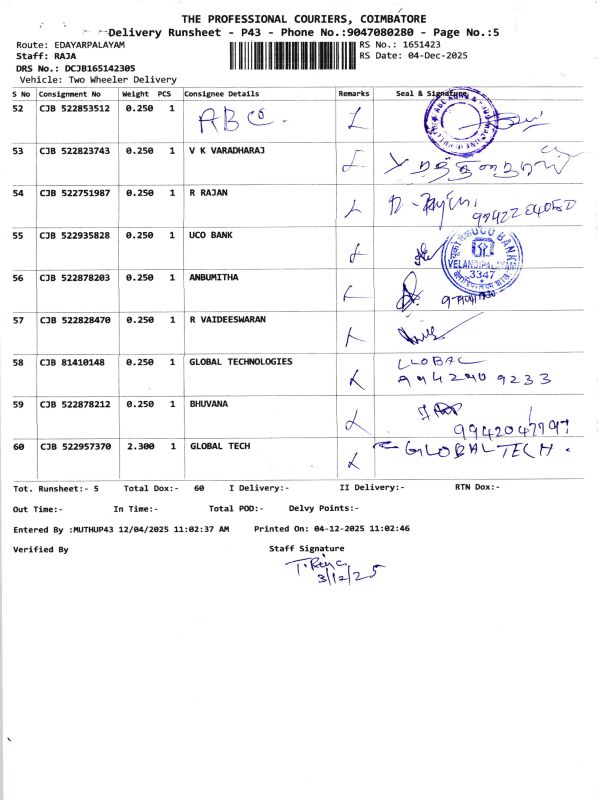 THE PROFESSIONAL COURIERS, COIMBATORE
Delivery Runsheet - P43 - Phone No.:9047080280 - Page No.:5
Route: EDAYARPALAYAM RS No.: 1651423
Staff: RAJA RS Date: 04-Dec-2025
DRS No.: DCJB165142305
Vehicle: Two Wheeler Delivery
S No Consignment No Weight PCS Consignee Details Remarks Seal & Signature
52 CJB 522853512 0.250 1 ABCo.
53 CJB 522823743 0.250 1 V K VARADHARAJ
54 CJB 522751987 0.250 1 R RAJAN
55 CJB 522935828 0.250 1 UCO BANK
UCO BANK
VELANDIPALAYAM
3347
56 CJB 522878203 0.250 1 ANBUMITHA
57 CJB 522828470 0.250 1 R VAIDEESWARAN
58 CJB 81410148 0.250 1 GLOBAL TECHNOLOGIES
59 CJB 522878212 0.250 1 BHUVANA
60 CJB 522957370 2.300 1 GLOBAL TECH GLOBAL TECH.
Tot. Runsheet:- 5 Total Dox:- 60 I Delivery:- II Delivery:- RTN Dox:-
Out Time:- In Time:- Total POD:- Delvy Points:-
Entered By :MUTHUP43 12/04/2025 11:02:37 AM Printed On: 04-12-2025 11:02:46
Verified By Staff Signature
3/12/25